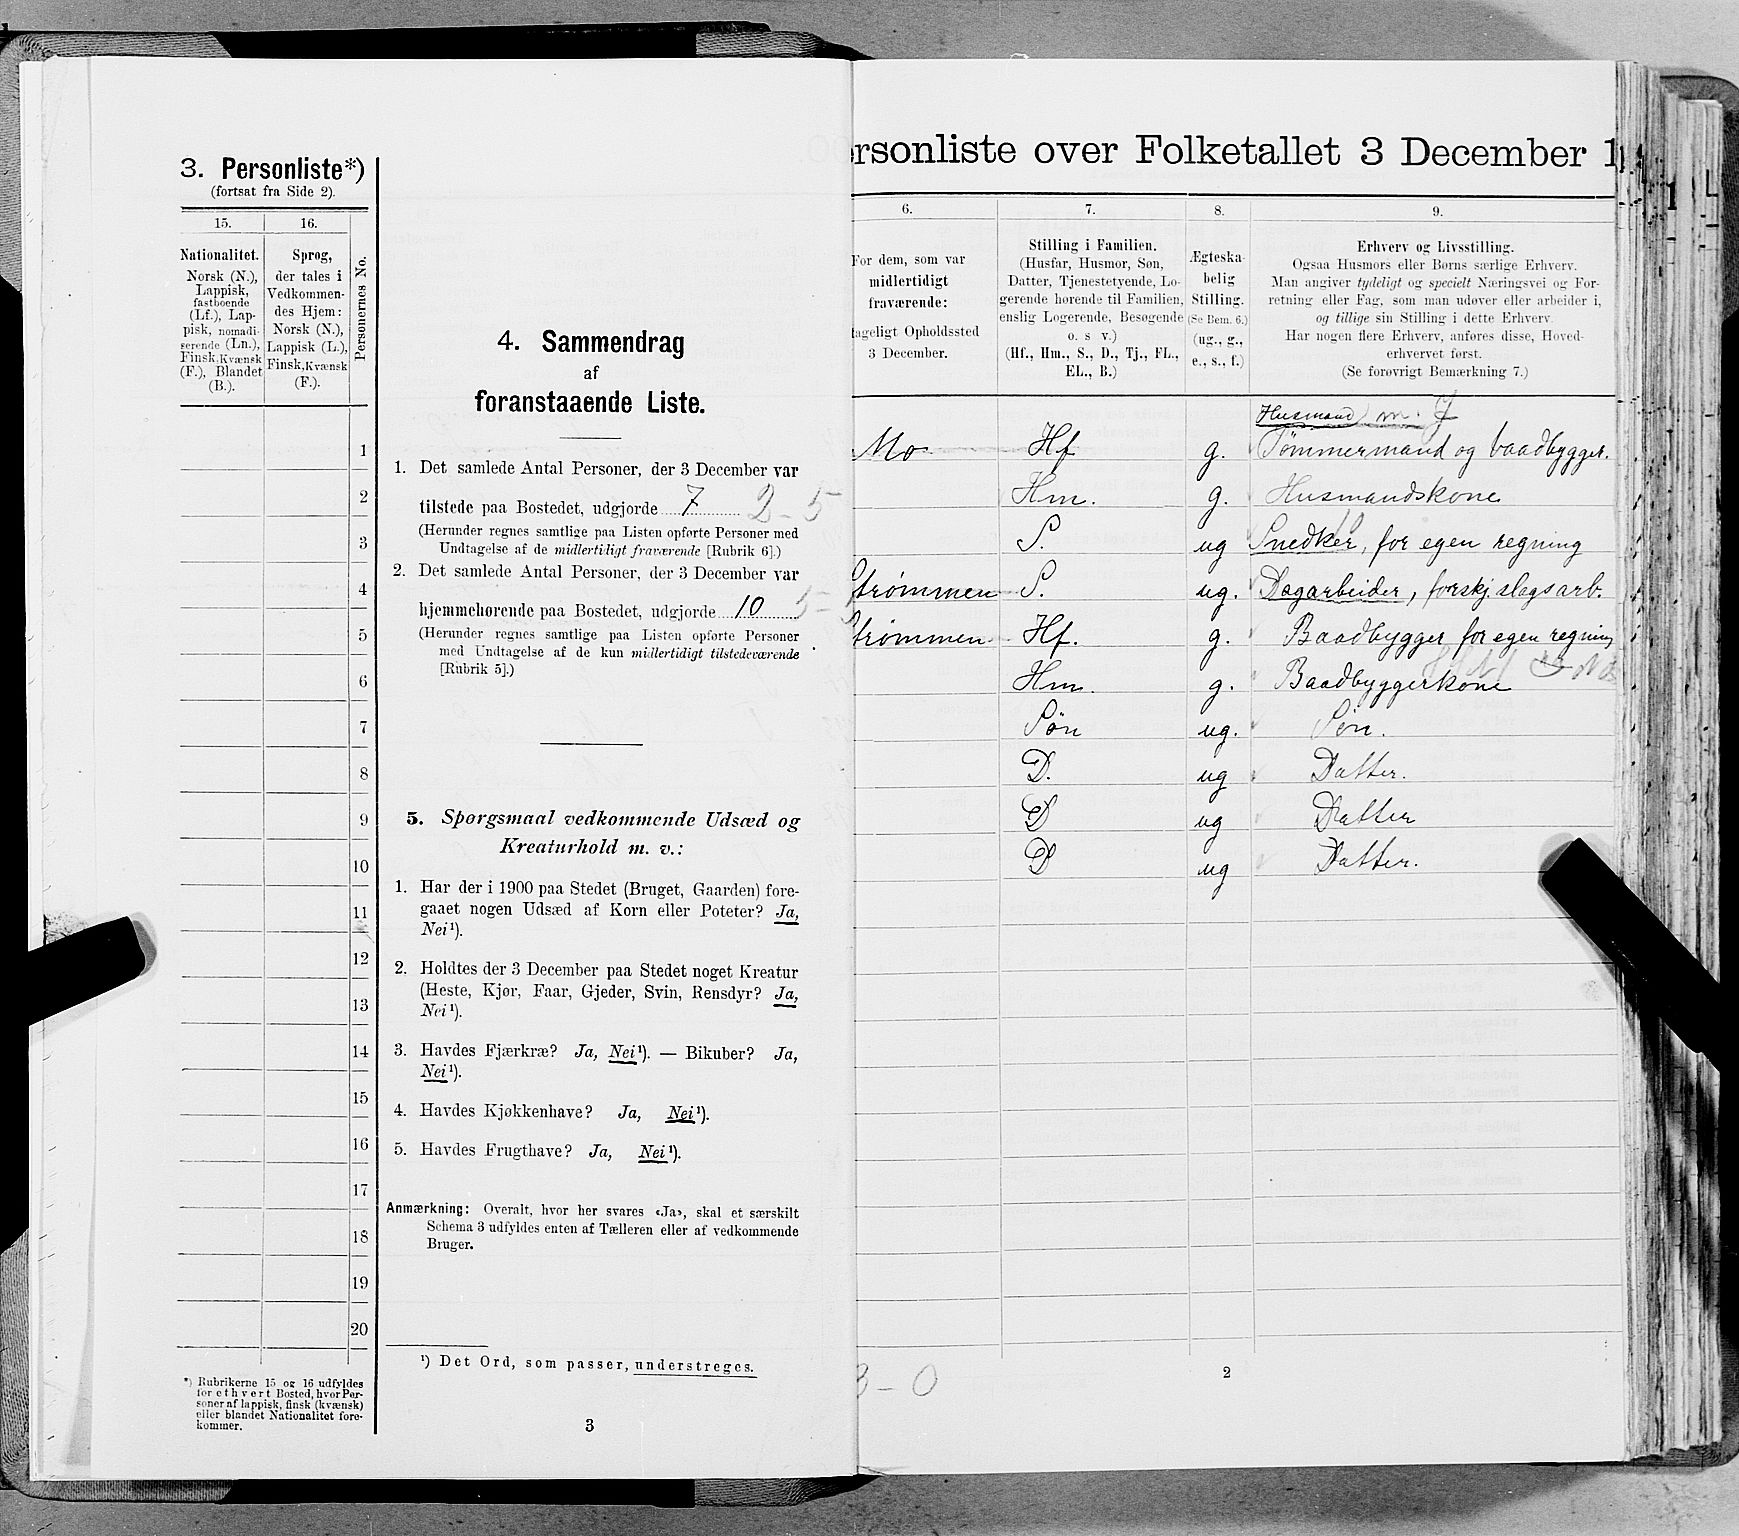 3. Personliste*)
(fortsat fra Side 2).
15.
16.
Personernes No.
Nationalitet.
Norsk (N.),
Lappisk,
fastboende
(Lf.), Lap-
pisk, nomadi-
serende (Ln.),
Finsk, Kvænsk
(F.), Blandet
(B.).
Sprog,
der tales i
Vedkommen-
des Hjem:
Norsk (N.),
Lappisk (L.),
Finsk, Kvænsk
(F.).
1
2
3
4
5
6
7
8
9
10
11
12
13
14
15
16
17
18
19
20
*) Rubrikerne 15 og 16 udfyldes
for ethvert Bosted, hvor Per-
soner af lappisk, finsk (kvænsk)
eller blandet Nationalitet fore-
kommer.
4. Sammendrag
af
foranstaaende Liste.
1. Det samlede Antal Personer, der 3 December var
tilstede paa Bostedet, udgjorde 7 2-5
(Herunder regnes samtlige paa Listen opførte Personer med
Undtagelse af de midlertidigt fraværende [Rubrik 6].)
2. Det samlede Antal Personer, der 3 December var
hjemmehørende paa Bostedet, udgjorde 10
(Herunder regnes samtlige paa Listen opførte Personer
med Undtagelse af de kun midlertidigt tilstedeværende
[Rubrik 5].)
5. Spørgsmaal vedkommende Udsæd og
Kreaturhold m. v.:
1. Har der i 1900 paa Stedet (Bruget, Gaarden) fore-
gaaet nogen Udsæd af Korn eller Poteter? Ja,
Nei¹).
2. Holdtes der 3 December paa Stedet noget Kreatur
(Heste, Kjør, Faar, Gjeder, Svin, Rensdyr? Ja,
Nei¹).
3. Havdes Fjærkræ? Ja, Nei¹). — Bikuber? Ja,
Nei¹).
4. Havdes Kjøkkenhave? Ja, Nei¹).
5. Havdes Frugthave? Ja, Nei¹).
Anmærkning: Overalt, hvor her svares «Ja», skal et særskilt
Schema 3 udfyldes enten af Tælleren eller af vedkommende
Bruger.
¹) Det Ord, som passer, understreges.
3
ersonliste over Folketallet 3 December 1
6.
7.
8.
9.
For dem, som var
midlertidigt
fraværende:
ageligt Opholdssted
3 December.
Stilling i Familien.
(Husfar, Husmor, Søn,
Datter, Tjenestetyende, Lo-
gerende hørende til Familien,
enslig Logerende, Besøgende
o. s. v.)
(Hf., Hm., S., D., Tj., FL.,
EL., B.)
Ægteska-
belig
Stilling.
(Se Bem. 6.)
(ug., g.,
e., s., f.)
Erhverv og Livsstilling.
Ogsaa Husmors eller Børns særlige Erhverv.
Man angiver tydeligt og specielt Næringsvei og For-
retning eller Fag, som man udøver eller arbeider i,
og tillige sin Stilling i dette Erhverv.
Har nogen flere Erhverv, anføres disse, Hoved-
erhvervet først.
(Se forøvrigt Bemærkning 7.)
Husmand m. J
Mo Hf g. Tømmermand og baadbygger.
Hm. g. Husmandskone
S. ug Snedker, for egen regning
Strømmen S. ug. Dagarbeider, forskj. slags arb.
Strømmen Hf. g. Baadbygger for egen regning
Hm. g. Baadbyggerkone
Søn ug. Søn.
D. ug Datter.
D ug Datter
D ug Datter.
3-0
2